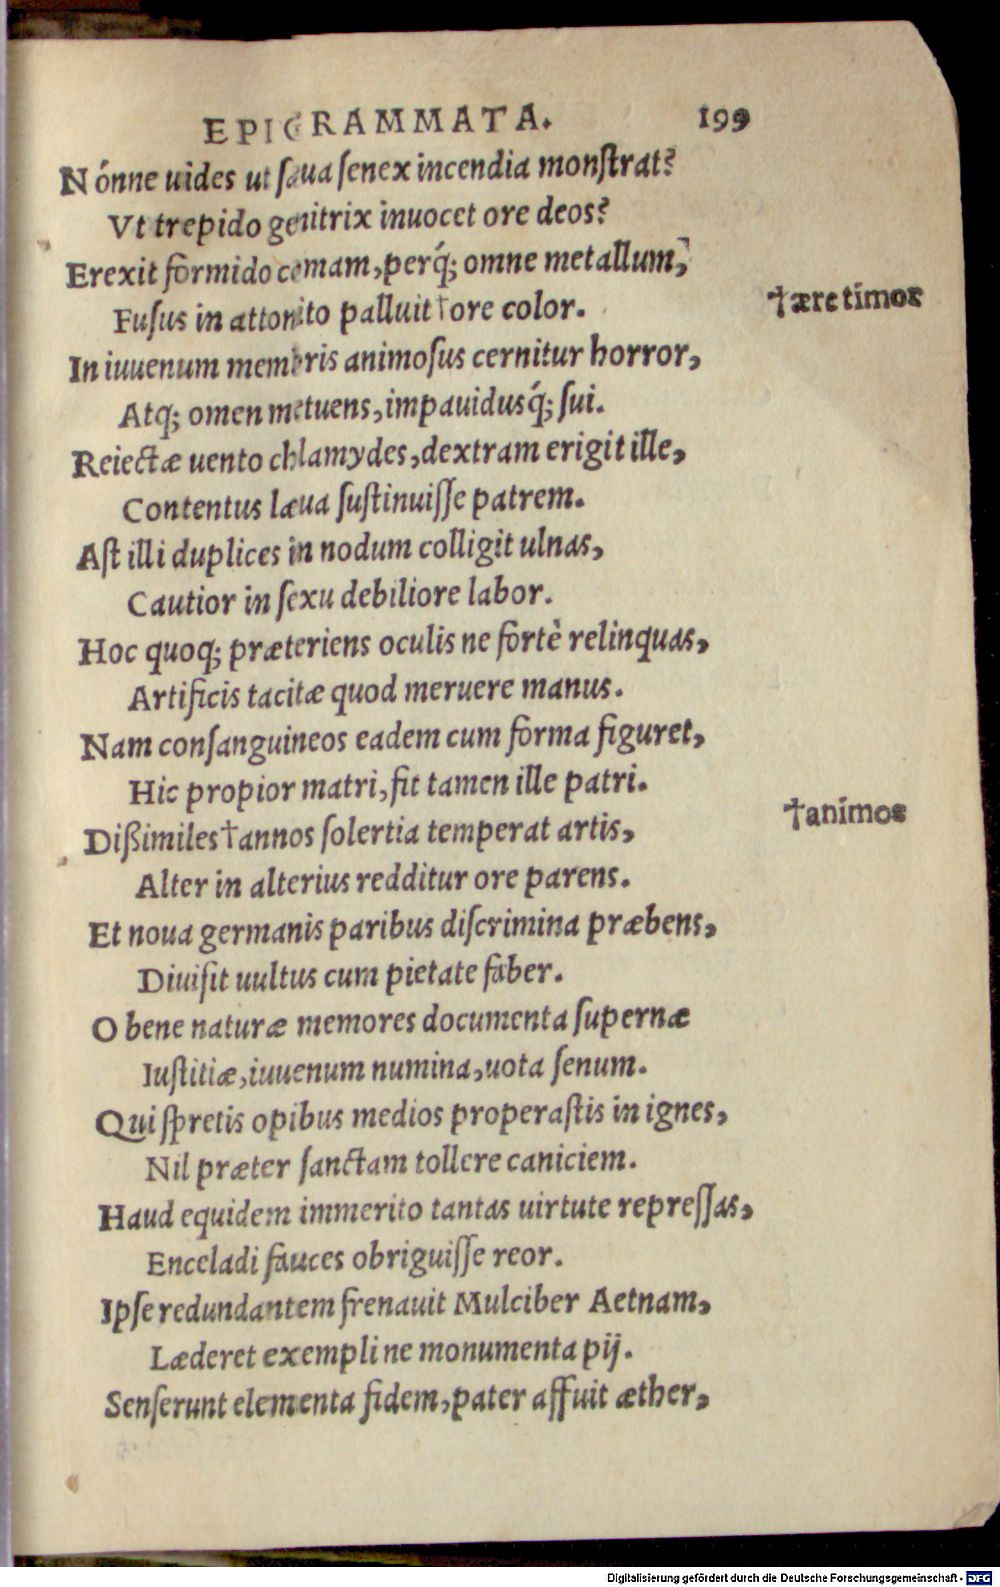 EPIGRAMMATA. 199
Nónne uides ut sæua senex incendia monstrat?
Vt trepido genitrix inuocet ore deos?
Erexit formido comam, perq́; omne metallum,
Fusus in attonito palluit †ore color. †ære timor
In iuuenum membris animosus cernitur horror,
Atq; omen metuens, impauidusq́; sui.
Reiectæ uento chlamydes, dextram erigit ille,
Contentus læua sustinuisse patrem.
Ast illi duplices in nodum colligit ulnas,
Cautior in sexu debiliore labor.
Hoc quoq; præteriens oculis ne fortè relinquas,
Artificis tacitæ quod meruere manus.
Nam consanguineos eadem cum forma figuret,
Hic propior matri, fit tamen ille patri.
Dißimiles †annos solertia temperat artis, †animos
Alter in alterius redditur ore parens.
Et noua germanis paribus discrimina præbens,
Diuisit uultus cum pietate faber.
O bene naturæ memores documenta supernæ
Iustitiæ, iuuenum numina, uota senum.
Qui spretis opibus medios properastis in ignes,
Nil præter sanctam tollere caniciem.
Haud equidem immerito tantas uirtute repressas,
Enceladi fauces obriguisse reor.
Ipse redundantem frenauit Mulciber Aetnam,
Læderet exempli ne monumenta pij.
Senserunt elementa fidem, pater affuit æther,
Digitalisierung gefördert durch die Deutsche Forschungsgemeinschaft - DFG